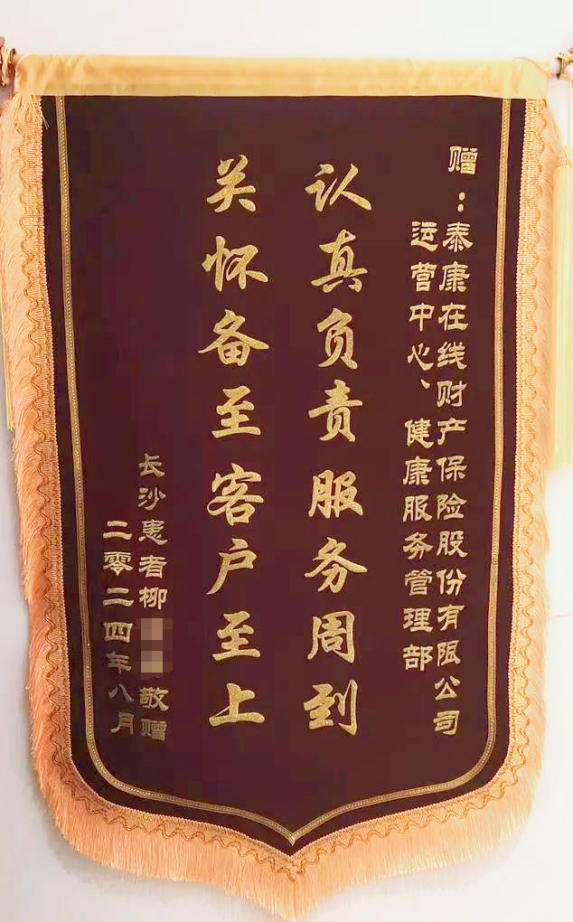 赠：泰康在线财产保险股份有限公司
运营中心、健康服务管理部
认真负责服务周到
关怀备至客户至上
长沙患者柳敬赠
二零二四年八月